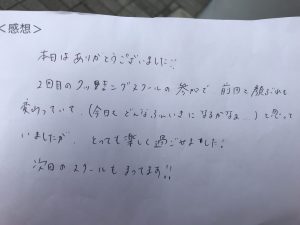 ＜感想＞
本日はありがとうございました!!
2回目のクッキングスクールの参加で 前回と顔ぶれも
変わっていて、(今日はどんなふんいきになるかなぁ…)と思って
いましたが、とっても楽しく過ごせました!
次回のスクールもまってます!!